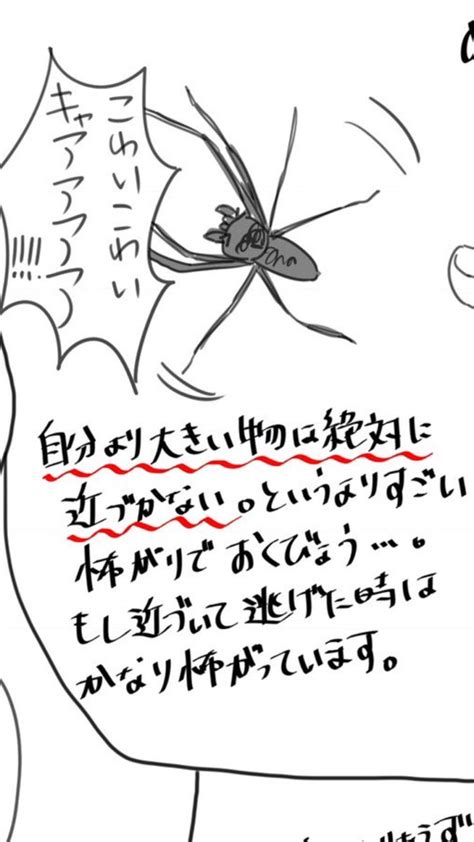 こわいこわい
キャアアアアアア
!!!!
自分より大きい物は絶対に
近づかない。というよりすごい
怖がりでおくびょう…。
もし近づいて逃げた時は
かなり怖がっています。